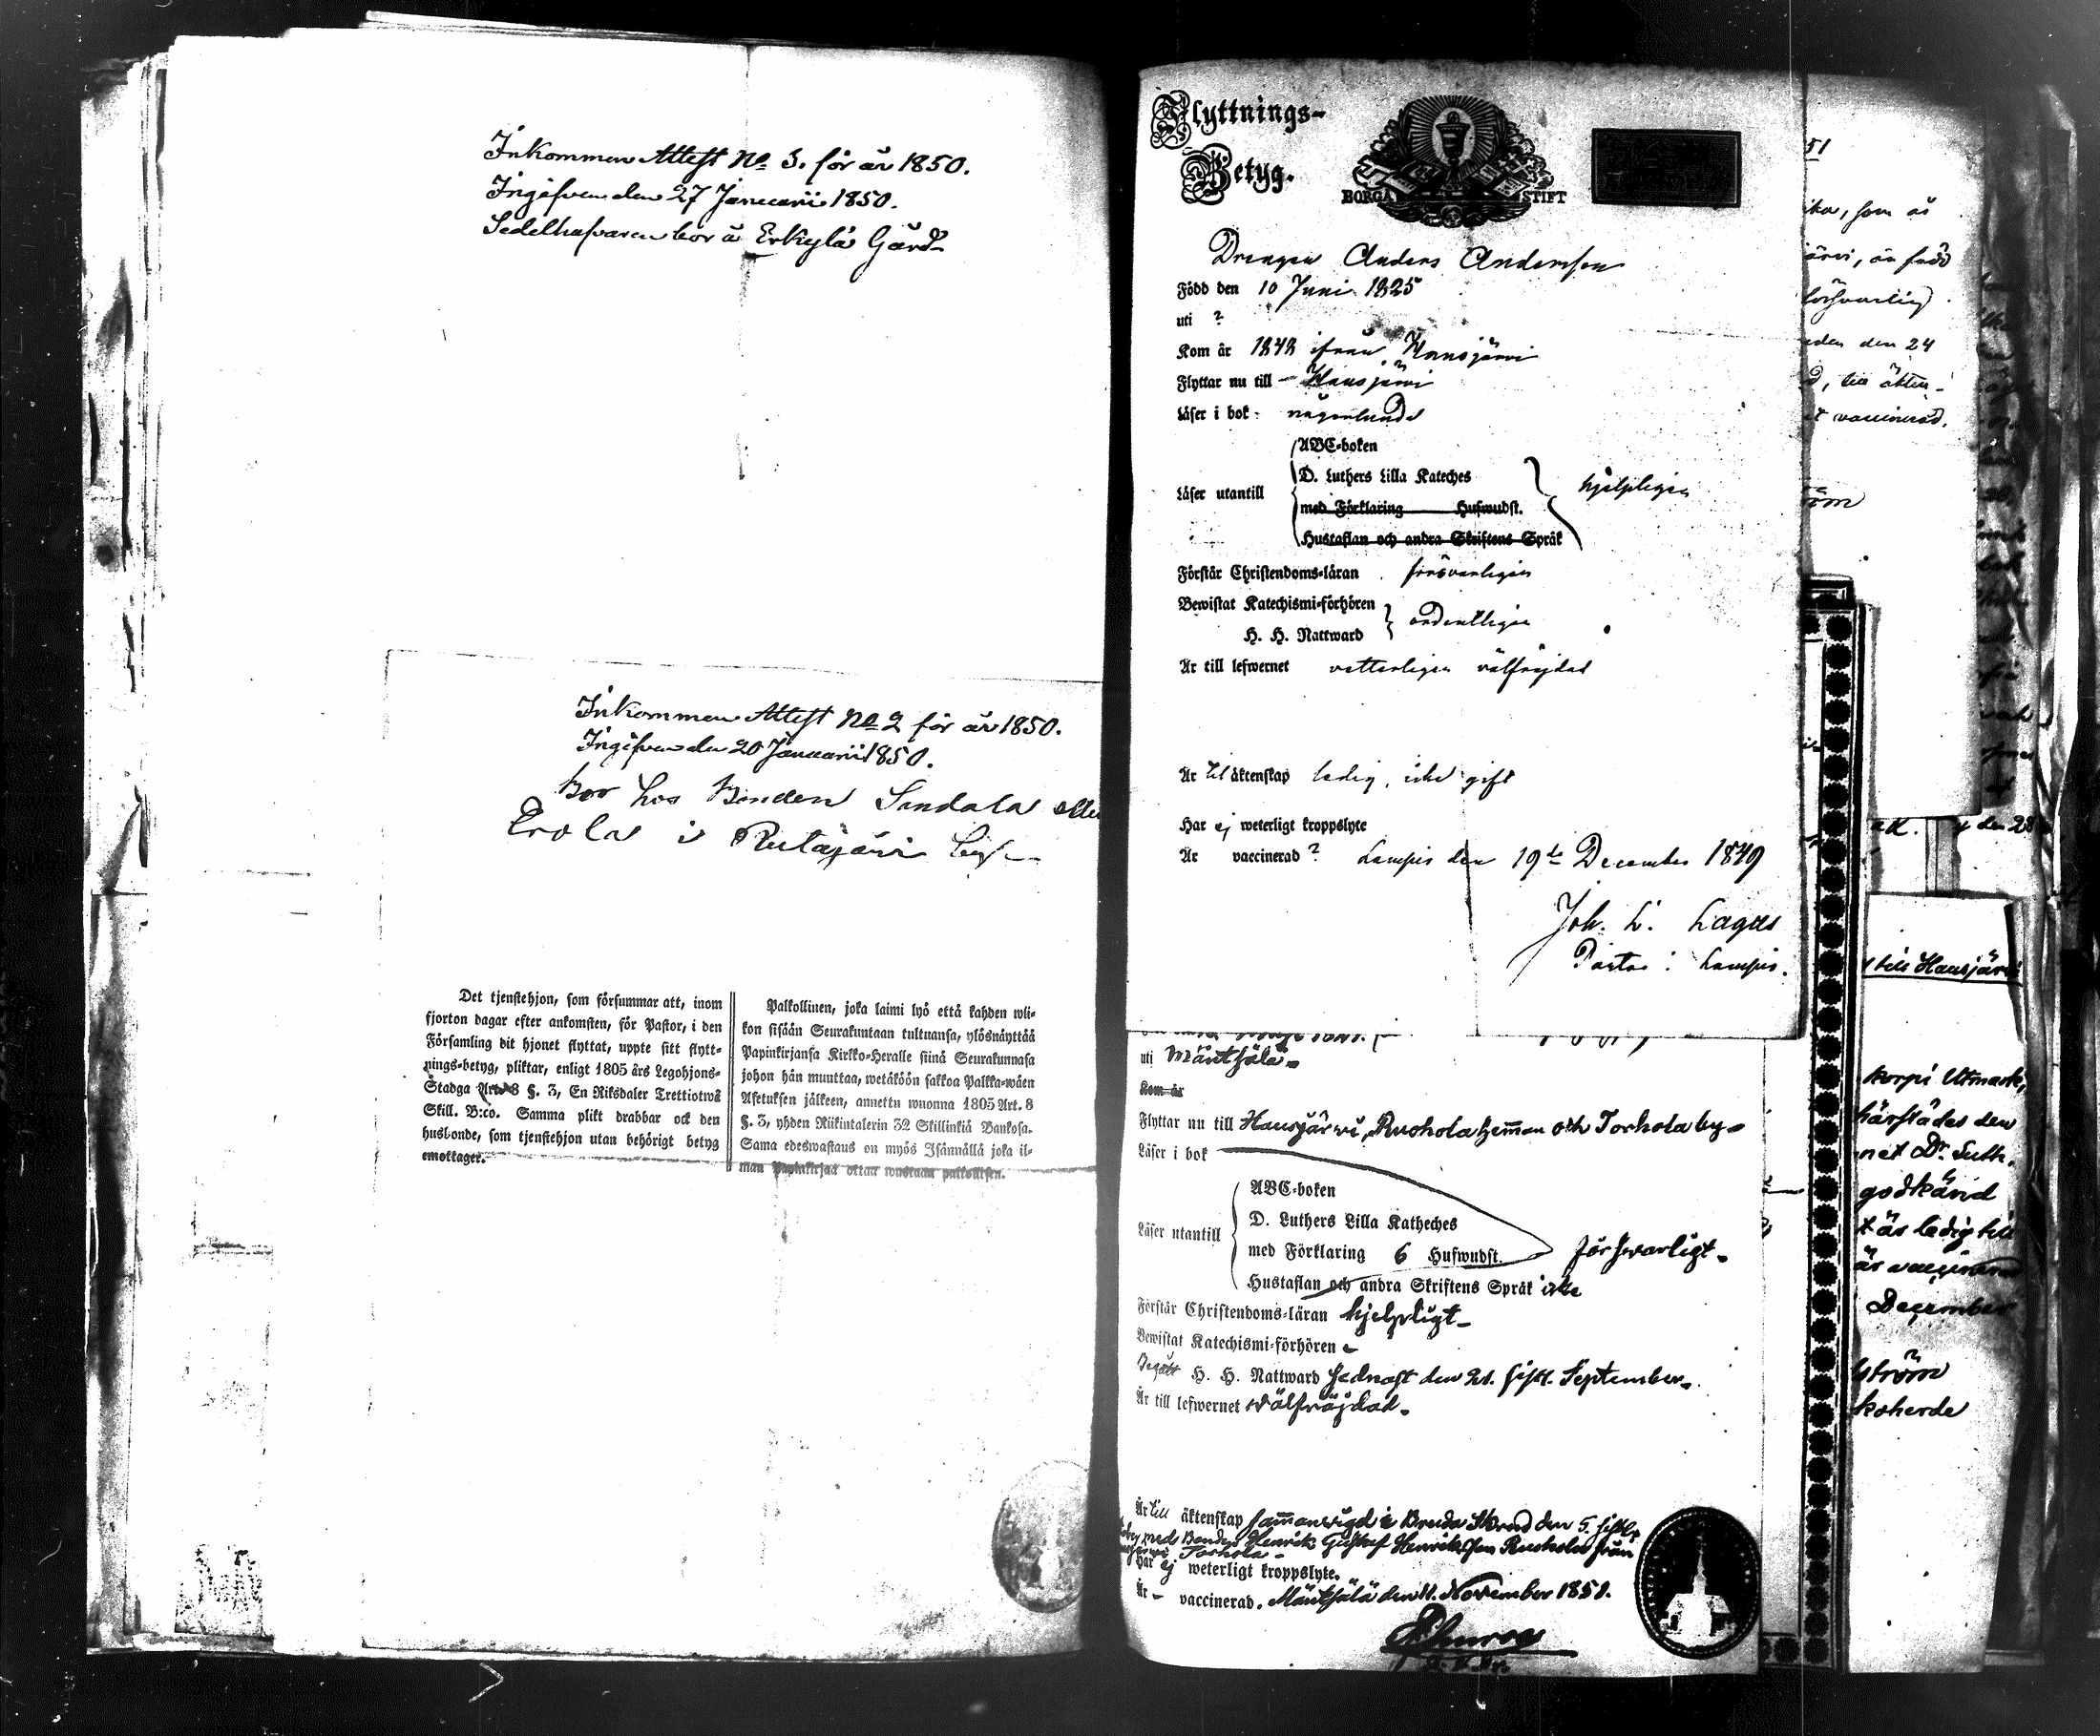 Inkommen Attest No 3. för år 1850.
Ingifven den 27 Januarii 1850.
Sedelhafvaren bor å Erkylä Gård
Inkommen Attest No 2 för år 1850.
Ingifven den 20 Januarii 1850.
Bor hos Bonden Sandala eller
Erola i Rutajärvi by
Det tjenstehjon, som försummar att, inom
fjorton dagar efter ankomsten, för Pastor, i den
Församling dit hjonet flyttat, uppte sitt flytt-
nings-betyg, pliktar, enligt 1805 års Legohjons-
Stadga Art. 8 §. 3, En Riksdaler Trettiotwå
Skill. B:co. Samma plikt drabbar ock den
husbonde, som tjenstehjon utan behörigt betyg
emottager.
Palkollinen, joka laimi lyö että kahden wii-
kon sisään Seurakuntaan tultuansa, ylösnäyttää
Papinkirjansa Kirkko-Heralle siinä Seurakunnasa
johon hän muuttaa, wetäköön sakkoa Palkka-wäen
Asetuksen jälkeen, annettu wuonna 1805 Art. 8
§. 3, yhden Riikintalerin 32 Skillinkiä Bankosa.
Sama edeswastaus on myös Isännällä joka il-
man Papinkirjaa ottaa wastaan palkollisen.
Flyttnings-
Betyg.
BORGÅ STIFT
Drengen Anders Andersson
Född den 10 Juni 1825
uti ?
Kom år 1848 ifrån Hausjärvi
Flyttar nu till Hausjärvi
Läser i bok någorlunda
Läser utantill
ABC-boken
D. Luthers Lilla Kateches
med Förklaring Hufwudst.
Hustaflan och andra Skriftens Språk
hjelpligen
Förstår Christendoms-läran försvarligen
Bewistat Katechismi-förhören
H. H. Nattward
ordentligen
Är till lefwernet vetterligen välfrejdad
Är til äktenskap ledig, icke gift
Har ej weterligt kroppslyte
Är vaccinerad ? Lampis den 19de December 1849
Joh. L. Lagus
Pastor i Lampis.
uti Mäntsälä
Kom år
Flyttar nu till Hausjärvi, Ruohola hemman och Torhola by
Läser i bok
Läser utantill
ABC-boken
D. Luthers Lilla Katheches
med Förklaring 6 Hufwudst.
Hustaflan och andra Skriftens Språk icke
försvarligt
Förstår Christendoms-läran hjelpligt
Bewistat Katechismi-förhören
Begått H. H. Nattward sednast den 21. sistl. September
Är till lefwernet välfräjdad
Är till äktenskap sammanvigd i den 5. sistl.
med Bonden Henrik Gustaf Henriksson Ruohola från
Torhola
Har ej weterligt kroppslyte.
Är vaccinerad. Mäntsälä den 11. November 1851.
51
som är
är född
försvarlig
den 24
vaccinerad.
till Hausjärvi
korpi Utmark,
härstädes den
Luth.
godkänd
är ledig till
är vaccinerad
December